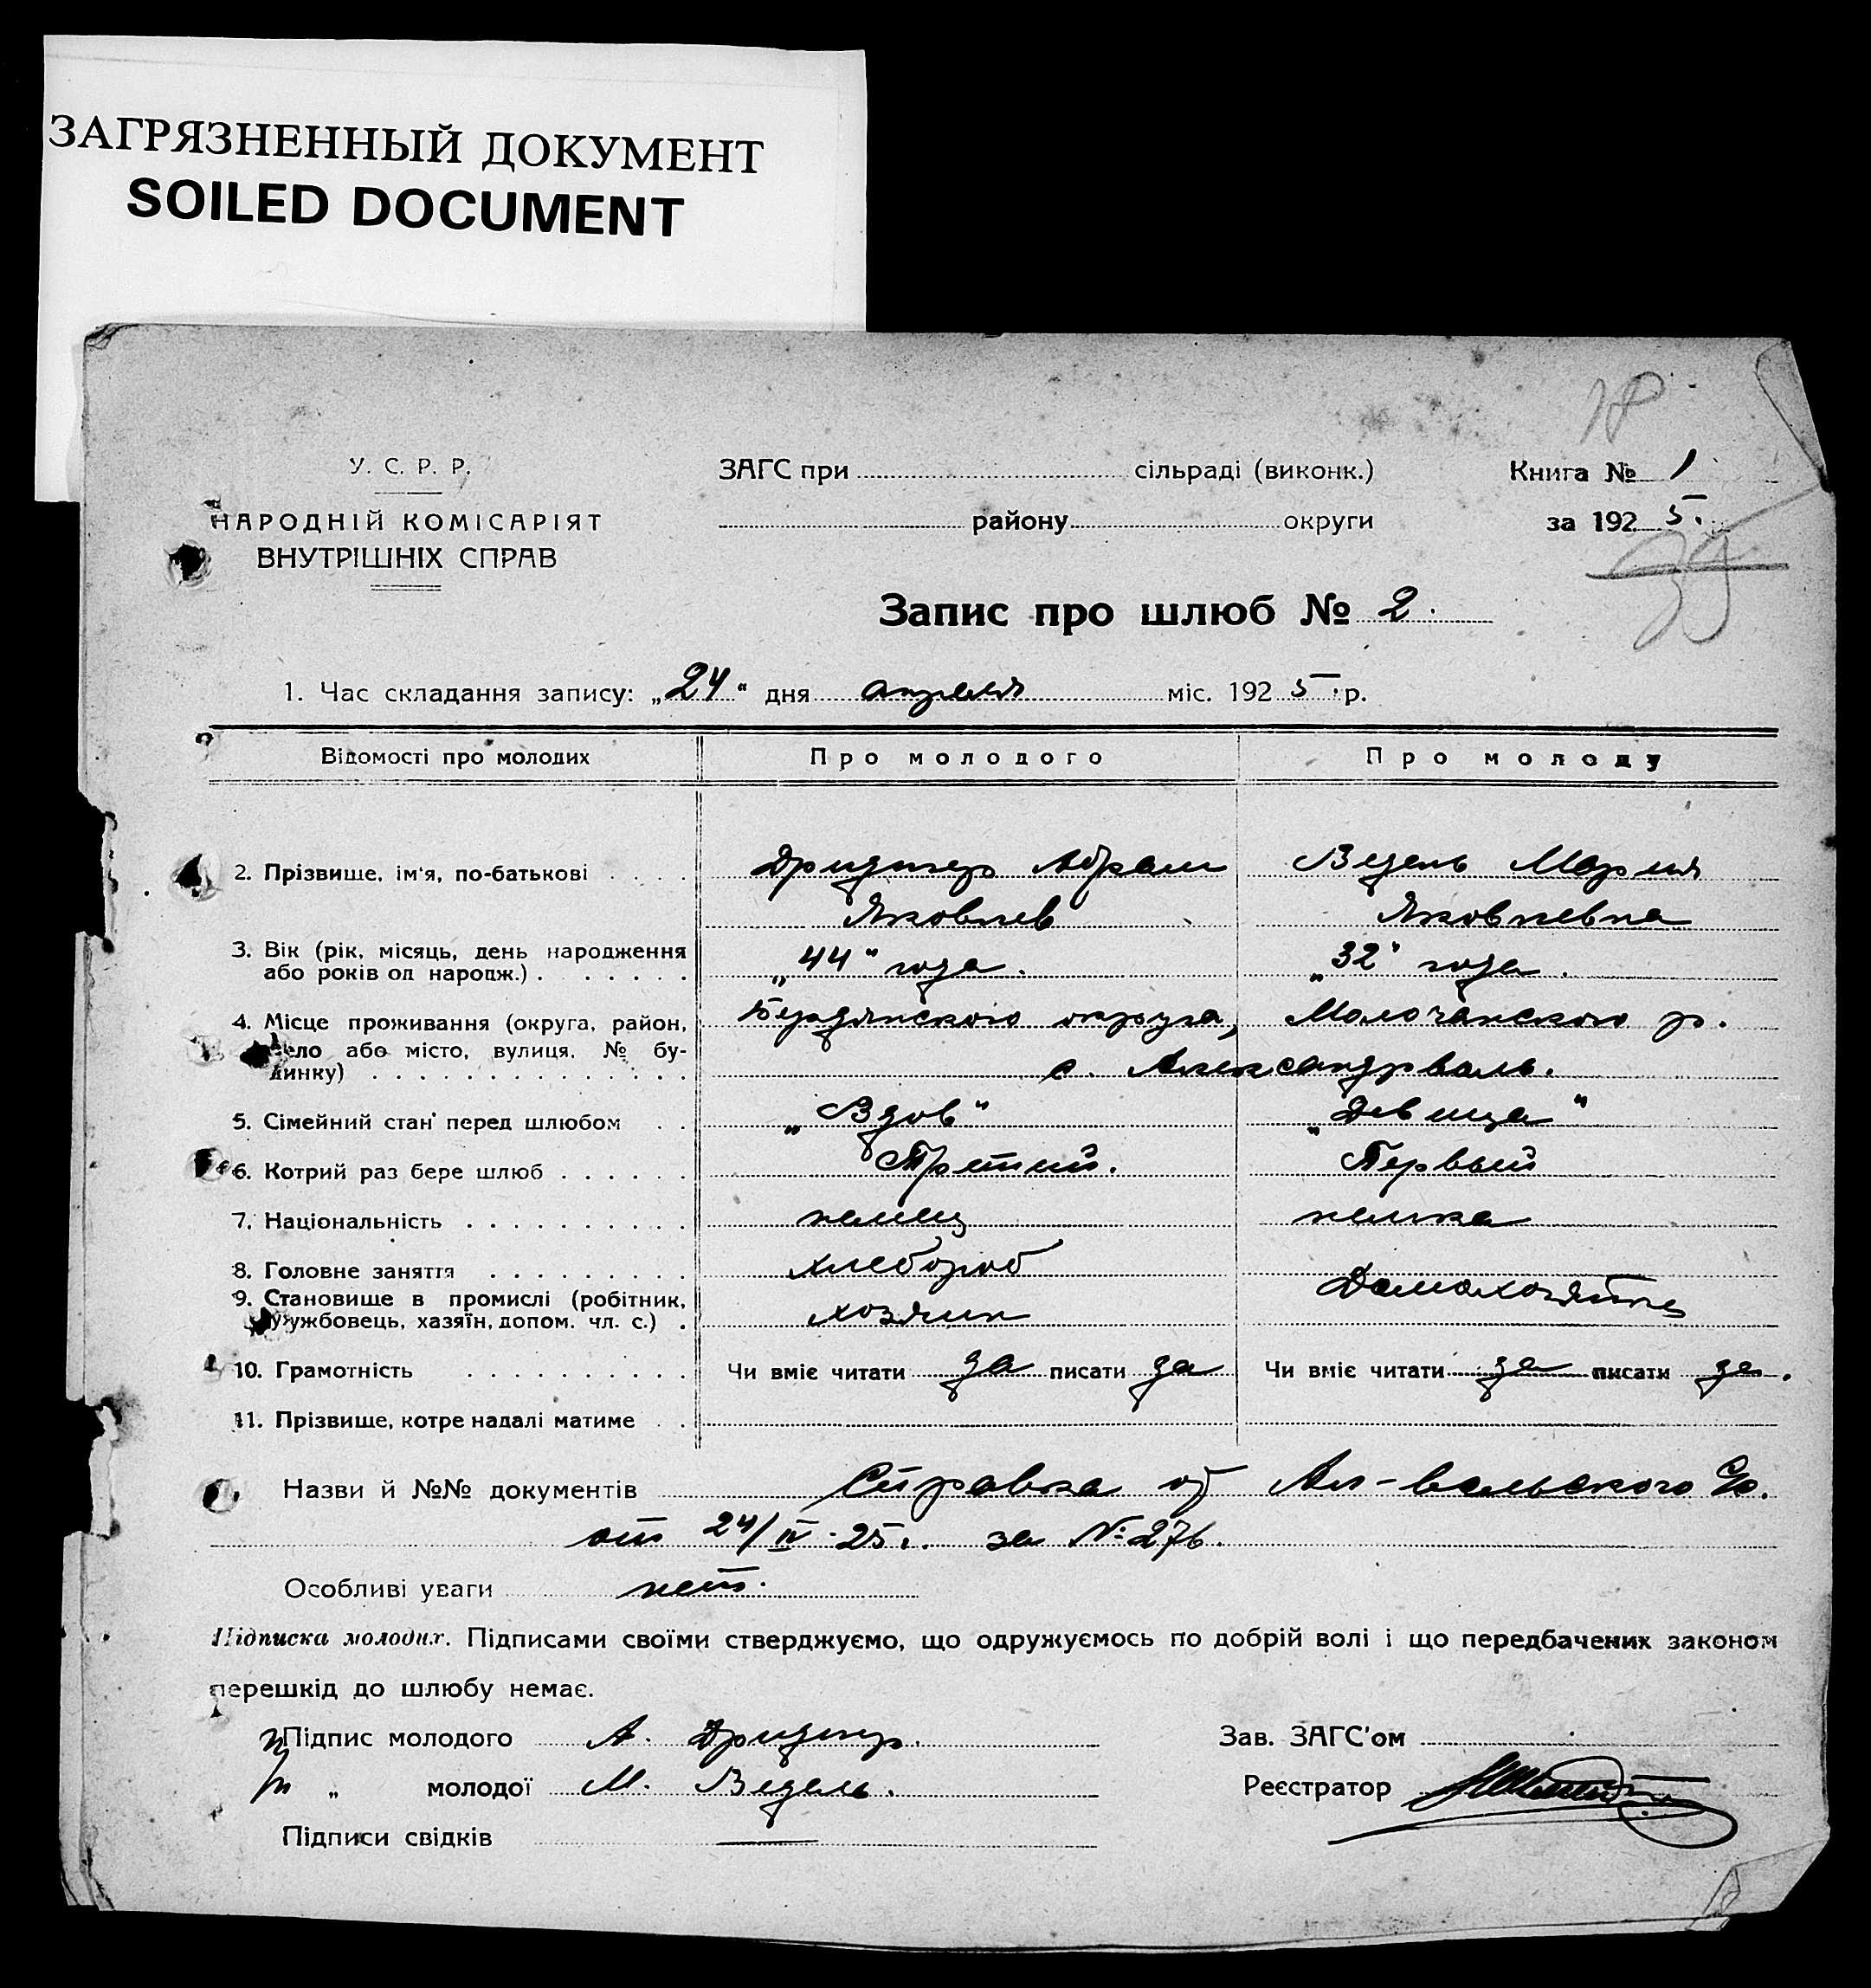 ЗАГРЯЗНЕННЫЙ ДОКУМЕНТ
SOILED DOCUMENT
18
У. С. Р. Р.
НАРОДНІЙ КОМІСАРІЯТ
ВНУТРІШНІХ СПРАВ
ЗАГС при сільраді (виконк.)
району округи
Книга № 1
за 1925.
39
Запис про шлюб № 2.
1. Час складання запису: „24“ дня апреля міс. 1925. р.
Відомості про молодих Про молодого Про молоду
2. Прізвище, ім'я, по-батькові Дридигер Абрам Ведель Мария
Яковлев Яковлевна
3. Вік (рік, місяць, день народження
або років од народж.) „44“ года. „32“ года.
4. Місце проживання (округа, район, Бердянского округа, Молочанского р.
село або місто, вулиця, № бу-
динку) с. Александрваль.
5. Сімейний стан перед шлюбом „Вдов“ „Девица“
6. Котрий раз бере шлюб Третий. Первый
7. Національність немец немка
8. Головне заняття хлебороб
9. Становище в промислі (робітник, Домохозяйка
службовець, хазяїн, допом. чл. с.) хозяин
10. Грамотність Чи вміє читати да писати да Чи вміє читати да писати да.
11. Прізвище, котре надалі матиме
Назви й №№ документів Справка от Ал-вальского С/с.
от 24/IV-25г. за №276.
Особливі уваги нет.
Підписка молодих. Підписами своїми стверджуємо, що одружуємось по добрій волі і що передбачених законом
перешкід до шлюбу немає.
Підпис молодого А. Дридигер.
Зав. ЗАГС'ом
„ молодої М. Ведель.
Реєстратор
Підписи свідків